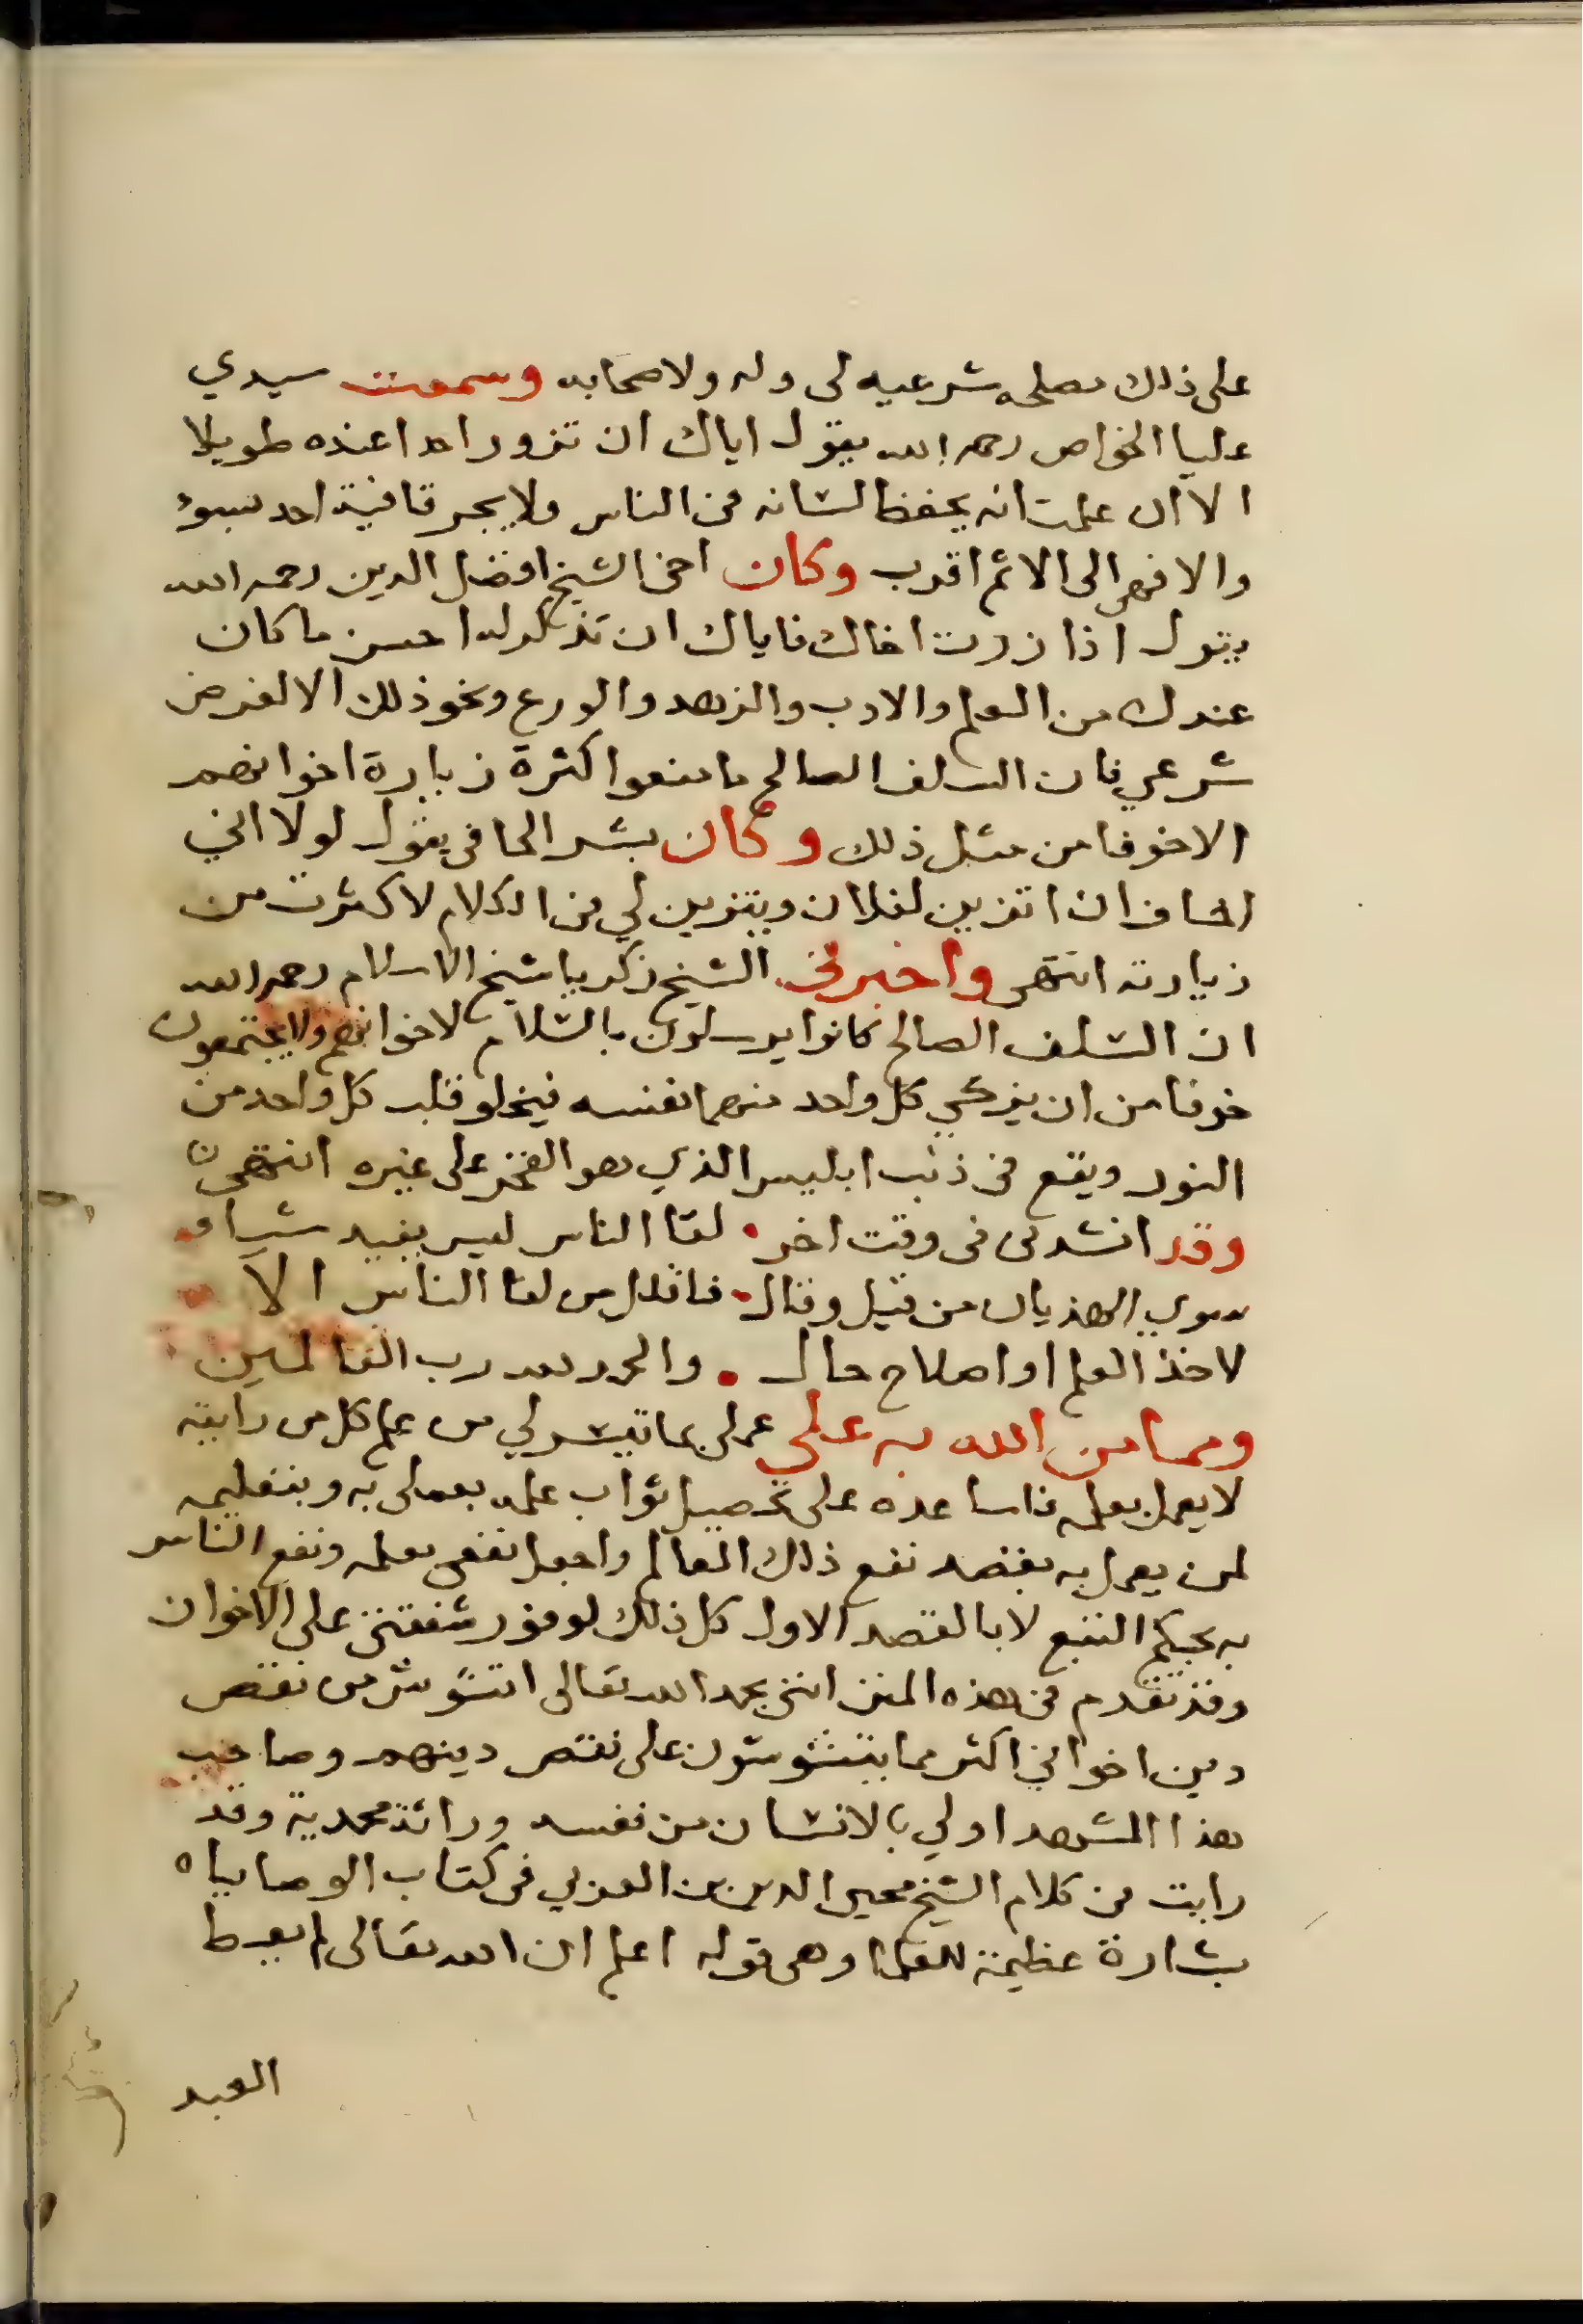 على ذلك مصلحة شرعيه لى وله ولاصحابه وسمعت سيدي
عليا الخواص رحمه الله يقول اياك ان تزور احدا عنده طويلا
الا ان علمت انه يحفظ لسانه من الناس ولا يجر قافية احد بسوء
والا فهى الى الاثم اقرب وكان اخى الشيخ افضل الدين رحمه الله
يقول اذا زرت اخاك فاياك ان تذكر له احسن ما كان
عندك من العلم والادب والزهد والورع ونحو ذلك الا لغرض
شرعي فان السلف الصالح ما منعوا كثرة زيارة اخوانهم
الا خوفا من مثل ذلك وكان بشر الحافى يقول لولا اني
اخاف ان اتزين لفلان ويتزين لي فى الكلام لاكثرت من
زيارته انتهى واخبرنى الشيخ زكريا شيخ الاسلام رحمه الله
ان السلف الصالح كانوا يرسلون بالسلام لاخوانهم ولا يجتمعون
خوفا من ان يزكي كل واحد منهما نفسه فيخلو قلب كل واحد من
النور ويقع فى ذنب ابليس الذي هو الفخر على غيره انتهى
وقد انشدنى فى وقت اخر • لقا الناس ليس يفيد شيا
سوي الهذيان من قيل وقال • فاقلل من لقا الناس الا
لاخذ العلم او اصلاح حال • والحمد لله رب العالمين
ومما من الله به على عملى بما تيسر لي من علم كل من رايته
لا يعمل بعلمه فاساعده على تحصيل ثواب علمه بعملى به وبتعليمه
لمن يعمل به بقصد نفع ذلك العالم واجعل نفعى بعلمه ونفع الناس
به بحكم التبع لا بالقصد الاول كل ذلك لوفور شفقتى على الاخوان
وقد تقدم فى هذه المنن اننى بحمد الله تعالى اتشوش من نقص
دين اخواني اكثر مما يتشوشون على نقص دينهم وصاحب
هذا المشهد اولي بالانسان من نفسه وراثة محمدية وقد
رايت فى كلام الشيخ محيى الدين بن العربي فى كتاب الوصايا
بشارة عظيمة للعلما وهى قوله اعلم ان الله تعالى لم يعط
العبد